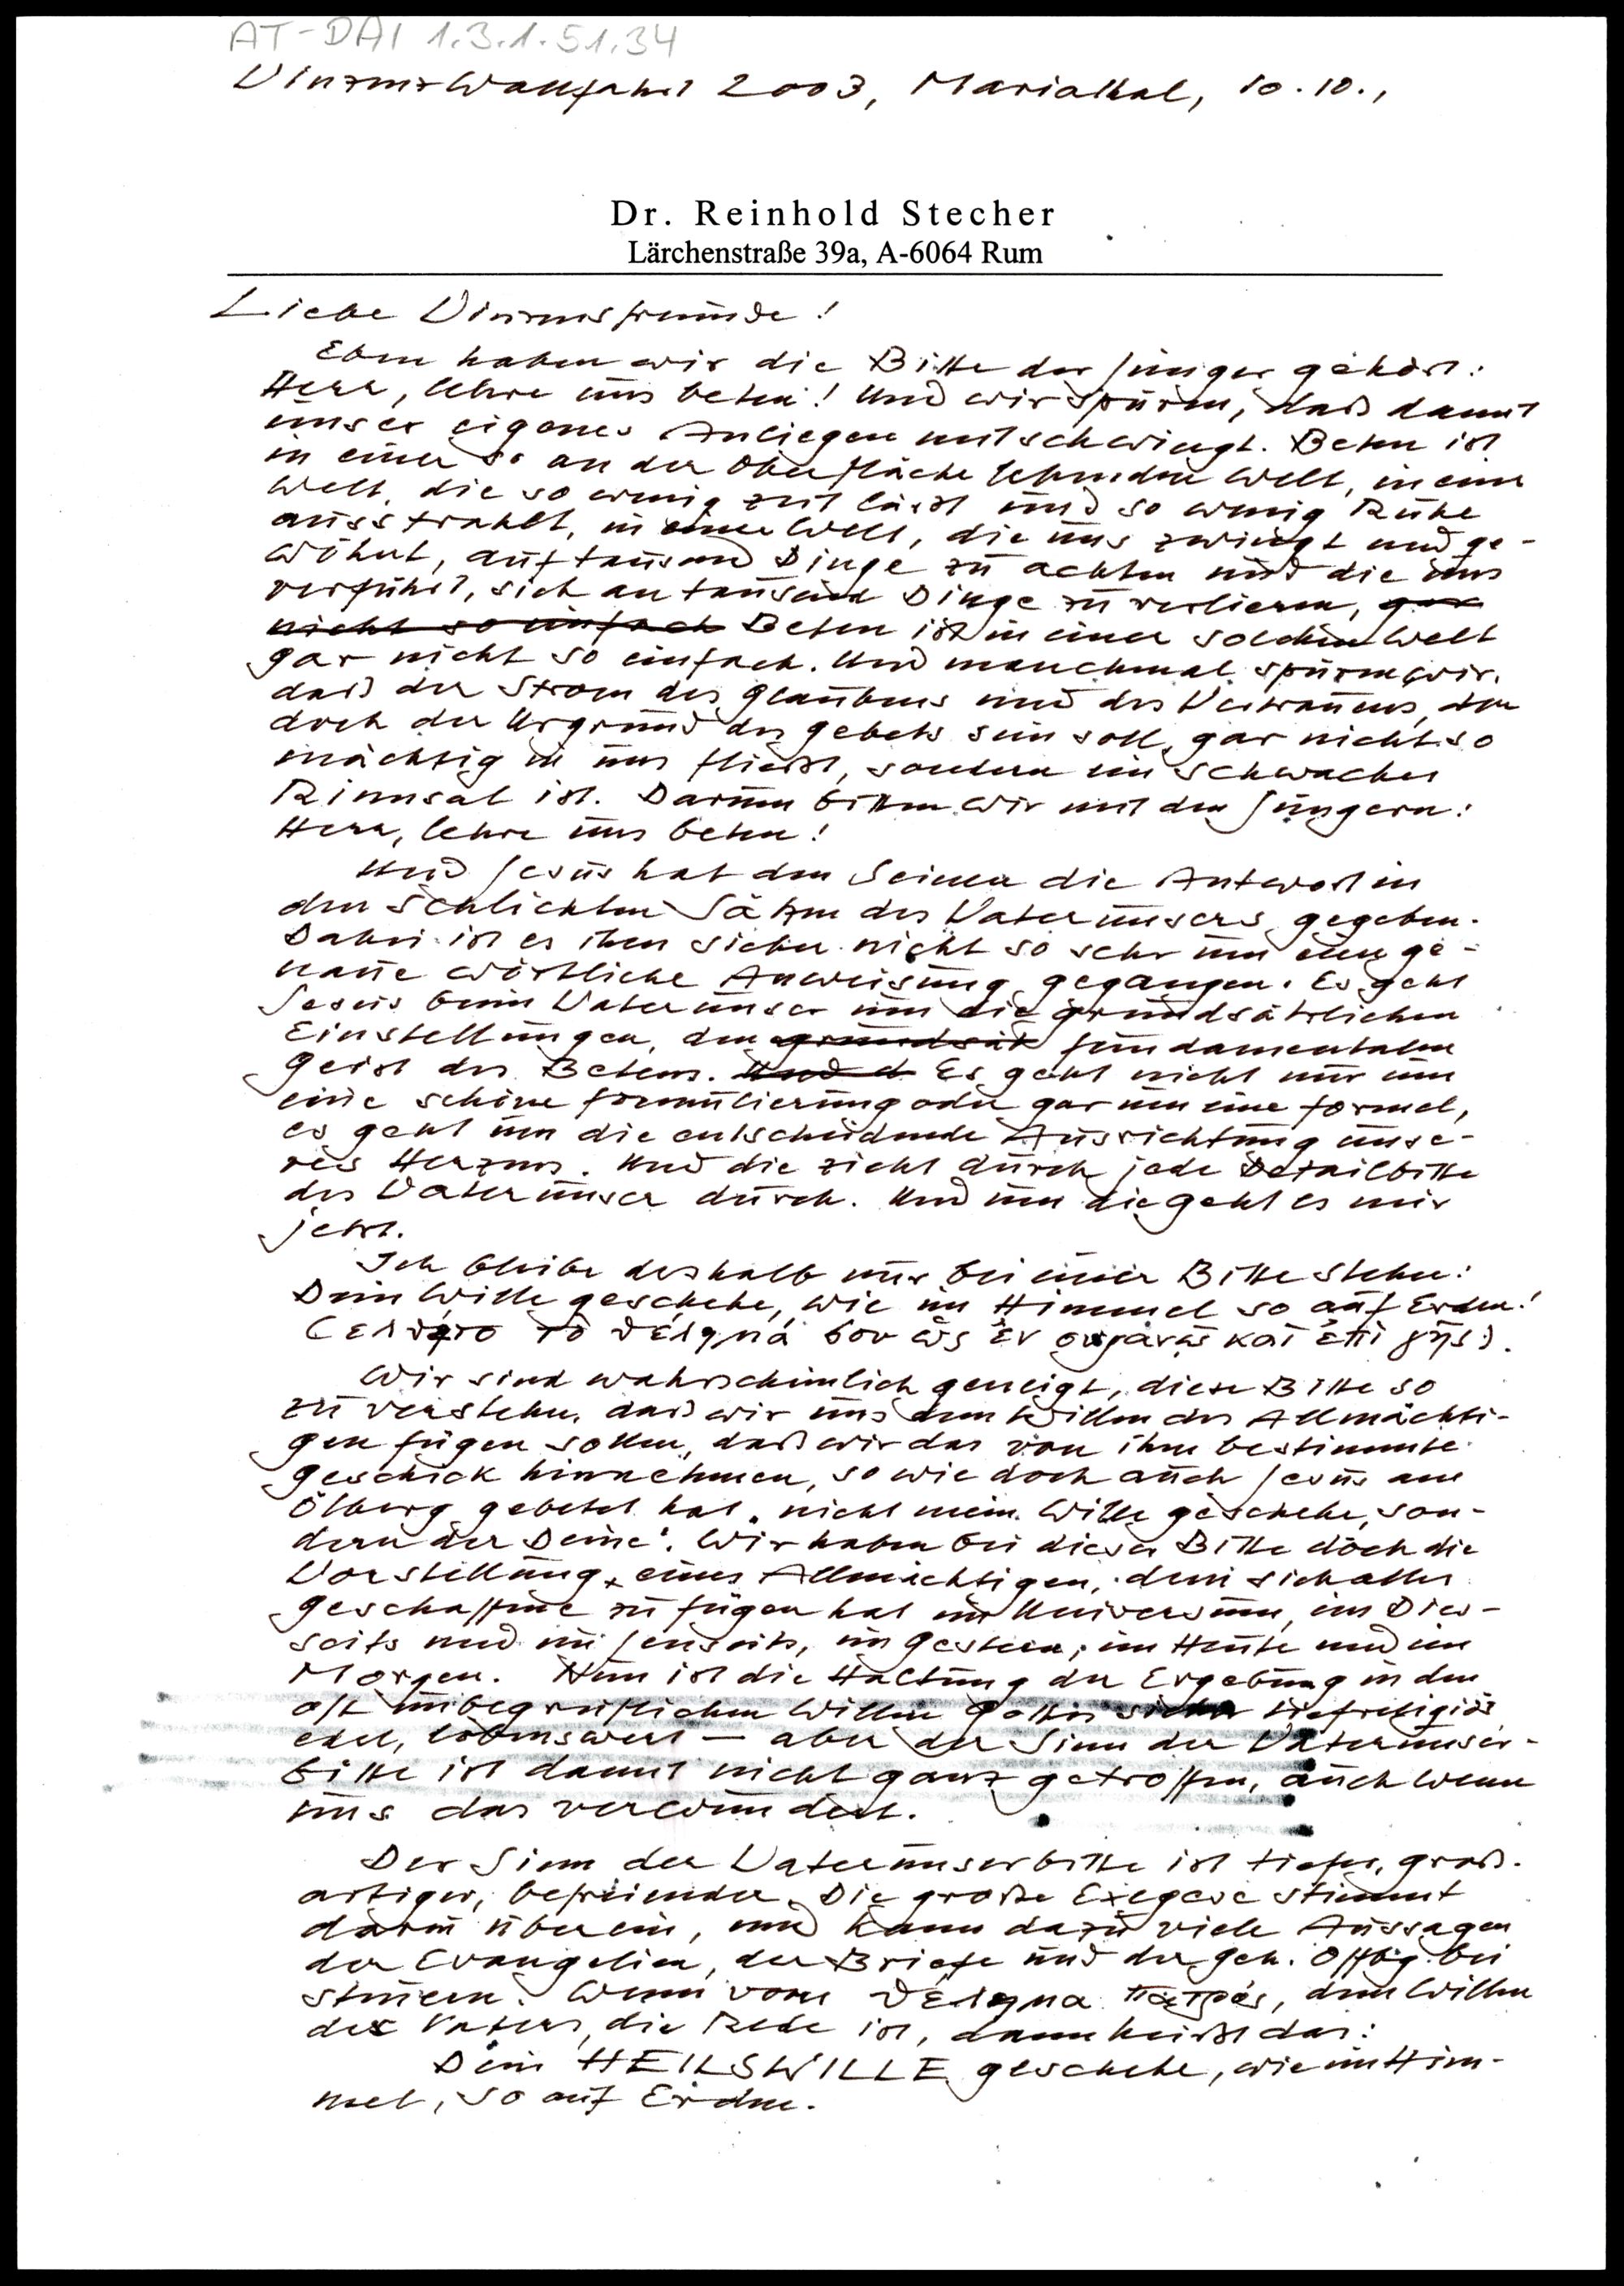 AT-DAI 1.3.1.51.34
Vinzenzwallfahrt 2003, Mariathal, 10.10.,
Dr. Reinhold Stecher
Lärchenstraße 39a, A-6064 Rum
Liebe Vinzenzfreunde!
Eben haben wir die Bitte der Jünger gehört:
Herr, lehre uns beten! Und wir spüren, daß damit
unser eigenes Anliegen mitschwingt. Beten ist
in einer so an der Oberfläche lebenden Welt, in einer
Welt, die so wenig Zeit läßt und so wenig Ruhe
ausstrahlt, in einer Welt, die uns zwingt und ge-
wöhnt, auf tausend Dinge zu achten und die uns
verführt, sich an tausend Dinge zu verlieren, gar
nicht so einfach Beten ist in einer solchen Welt
gar nicht so einfach. Und manchmal spüren wir,
daß der Strom des Glaubens und des Vertrauens, der
doch der Urgrund des Gebets sein soll, gar nicht so
mächtig in uns fließt, sondern ein schwaches
Rinnsal ist. Darum bitten wir mit den Jüngern:
Herr, lehre uns beten!
Und Jesus hat den Seinen die Antwort in
den schlichten Sätzen des Vaterunsers gegeben.
Dabei ist es ihm sicher nicht so sehr um eine ge-
naue wörtliche Anweisung gegangen. Es geht
Jesus beim Vaterunser um die grundsätzlichen
Einstellungen, den grundsät fundamentalen
Geist des Betens. Und d Es geht nicht nur um
eine schöne Formulierung oder gar um eine Formel,
es geht um die entscheidende Ausrichtung unse-
res Herzens. Und die zieht durch jede Detailbitte
des Vaterunser durch. Und um die geht es mir
jetzt.
Ich bleibe deshalb nur bei einer Bitte stehen:
Dein Wille geschehe, wie im Himmel so auf Erden!
τὸ θέλημά σου ὡς ἐν οὐρανῷ καὶ ἐπὶ γῆς).
Wir sind wahrscheinlich geneigt, diese Bitte so
zu verstehen, daß wir uns dem Willen des Allmächti-
gen fügen sollen, daß wir das von ihm bestimmte
Geschick hinnehmen, so wie doch auch Jesus am
Ölberg gebetet hat „nicht mein Wille geschehe, son-
dern der Deine". Wir haben bei dieser Bitte doch die
Vorstellung eines Allmächtigen, dem sich alles
Geschaffene zu fügen hat im Universum, im Dies-
seits und im Jenseits, im Gestern, im Heute und im
Morgen. Nun ist die Haltung der Ergebung in den
oft unbegreiflichen Willen Gottes sicher tiefreligiös
edel, lobenswert – aber der Sinn der Vaterunser-
bitte ist damit nicht ganz getroffen, auch wenn
uns das verwundert.
Der Sinn der Vaterunserbitte ist tiefer, groß-
artiger, befreiender. Die große Exegese stimmt
darin überein, und kann dazu viele Aussagen
der Evangelien, der Briefe und der geh. Offbg. bei
steuern. Wenn vom θέλημα πατρός, dem Willen
des Vaters, die Rede ist, dann heißt das:
Dein HEILSWILLE geschehe, wie im Him-
mel, so auf Erden.